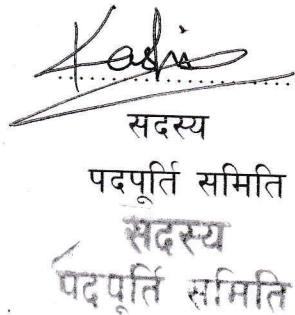 Kashi
सदस्य
पदपूर्ति समिति
सदस्य
पदपूर्ति समिति